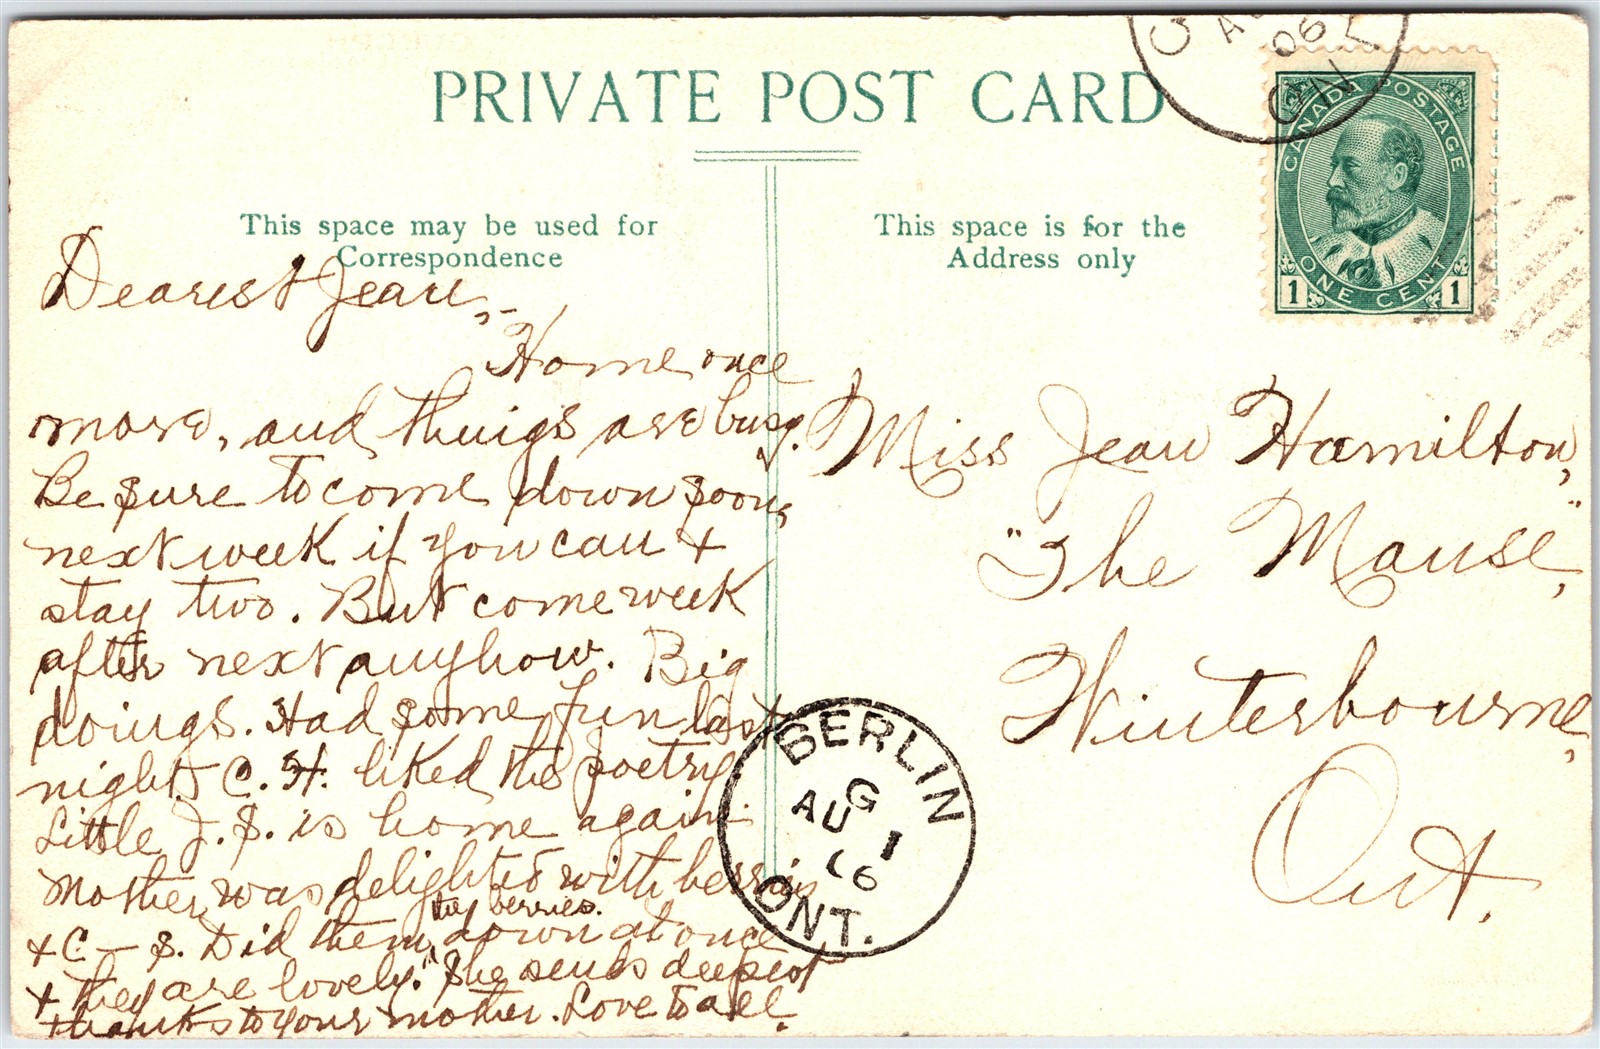 PRIVATE POST CARD
This space may be used for
Correspondence
This space is for the
Address only
CANADA POSTAGE
ONE CENT
1 1
06
ON
Dearest Jean,-
Home once
more, and things are busy.
Be sure to come down soon,
next week if you can +
stay two. But come week
after next anyhow. Big
doings. Had some fun last
night. C. H. liked the poetry
Little J. S. is home again.
Mother was delighted with berries
the berries.
+ C — S. Did them down at once
+ they are lovely. She sends deepest
thanks to your mother. Love to all.
Miss Jean Hamilton,
"The Manse,"
Winterbourne,
Ont.
BERLIN
G
AU 1
06
ONT.